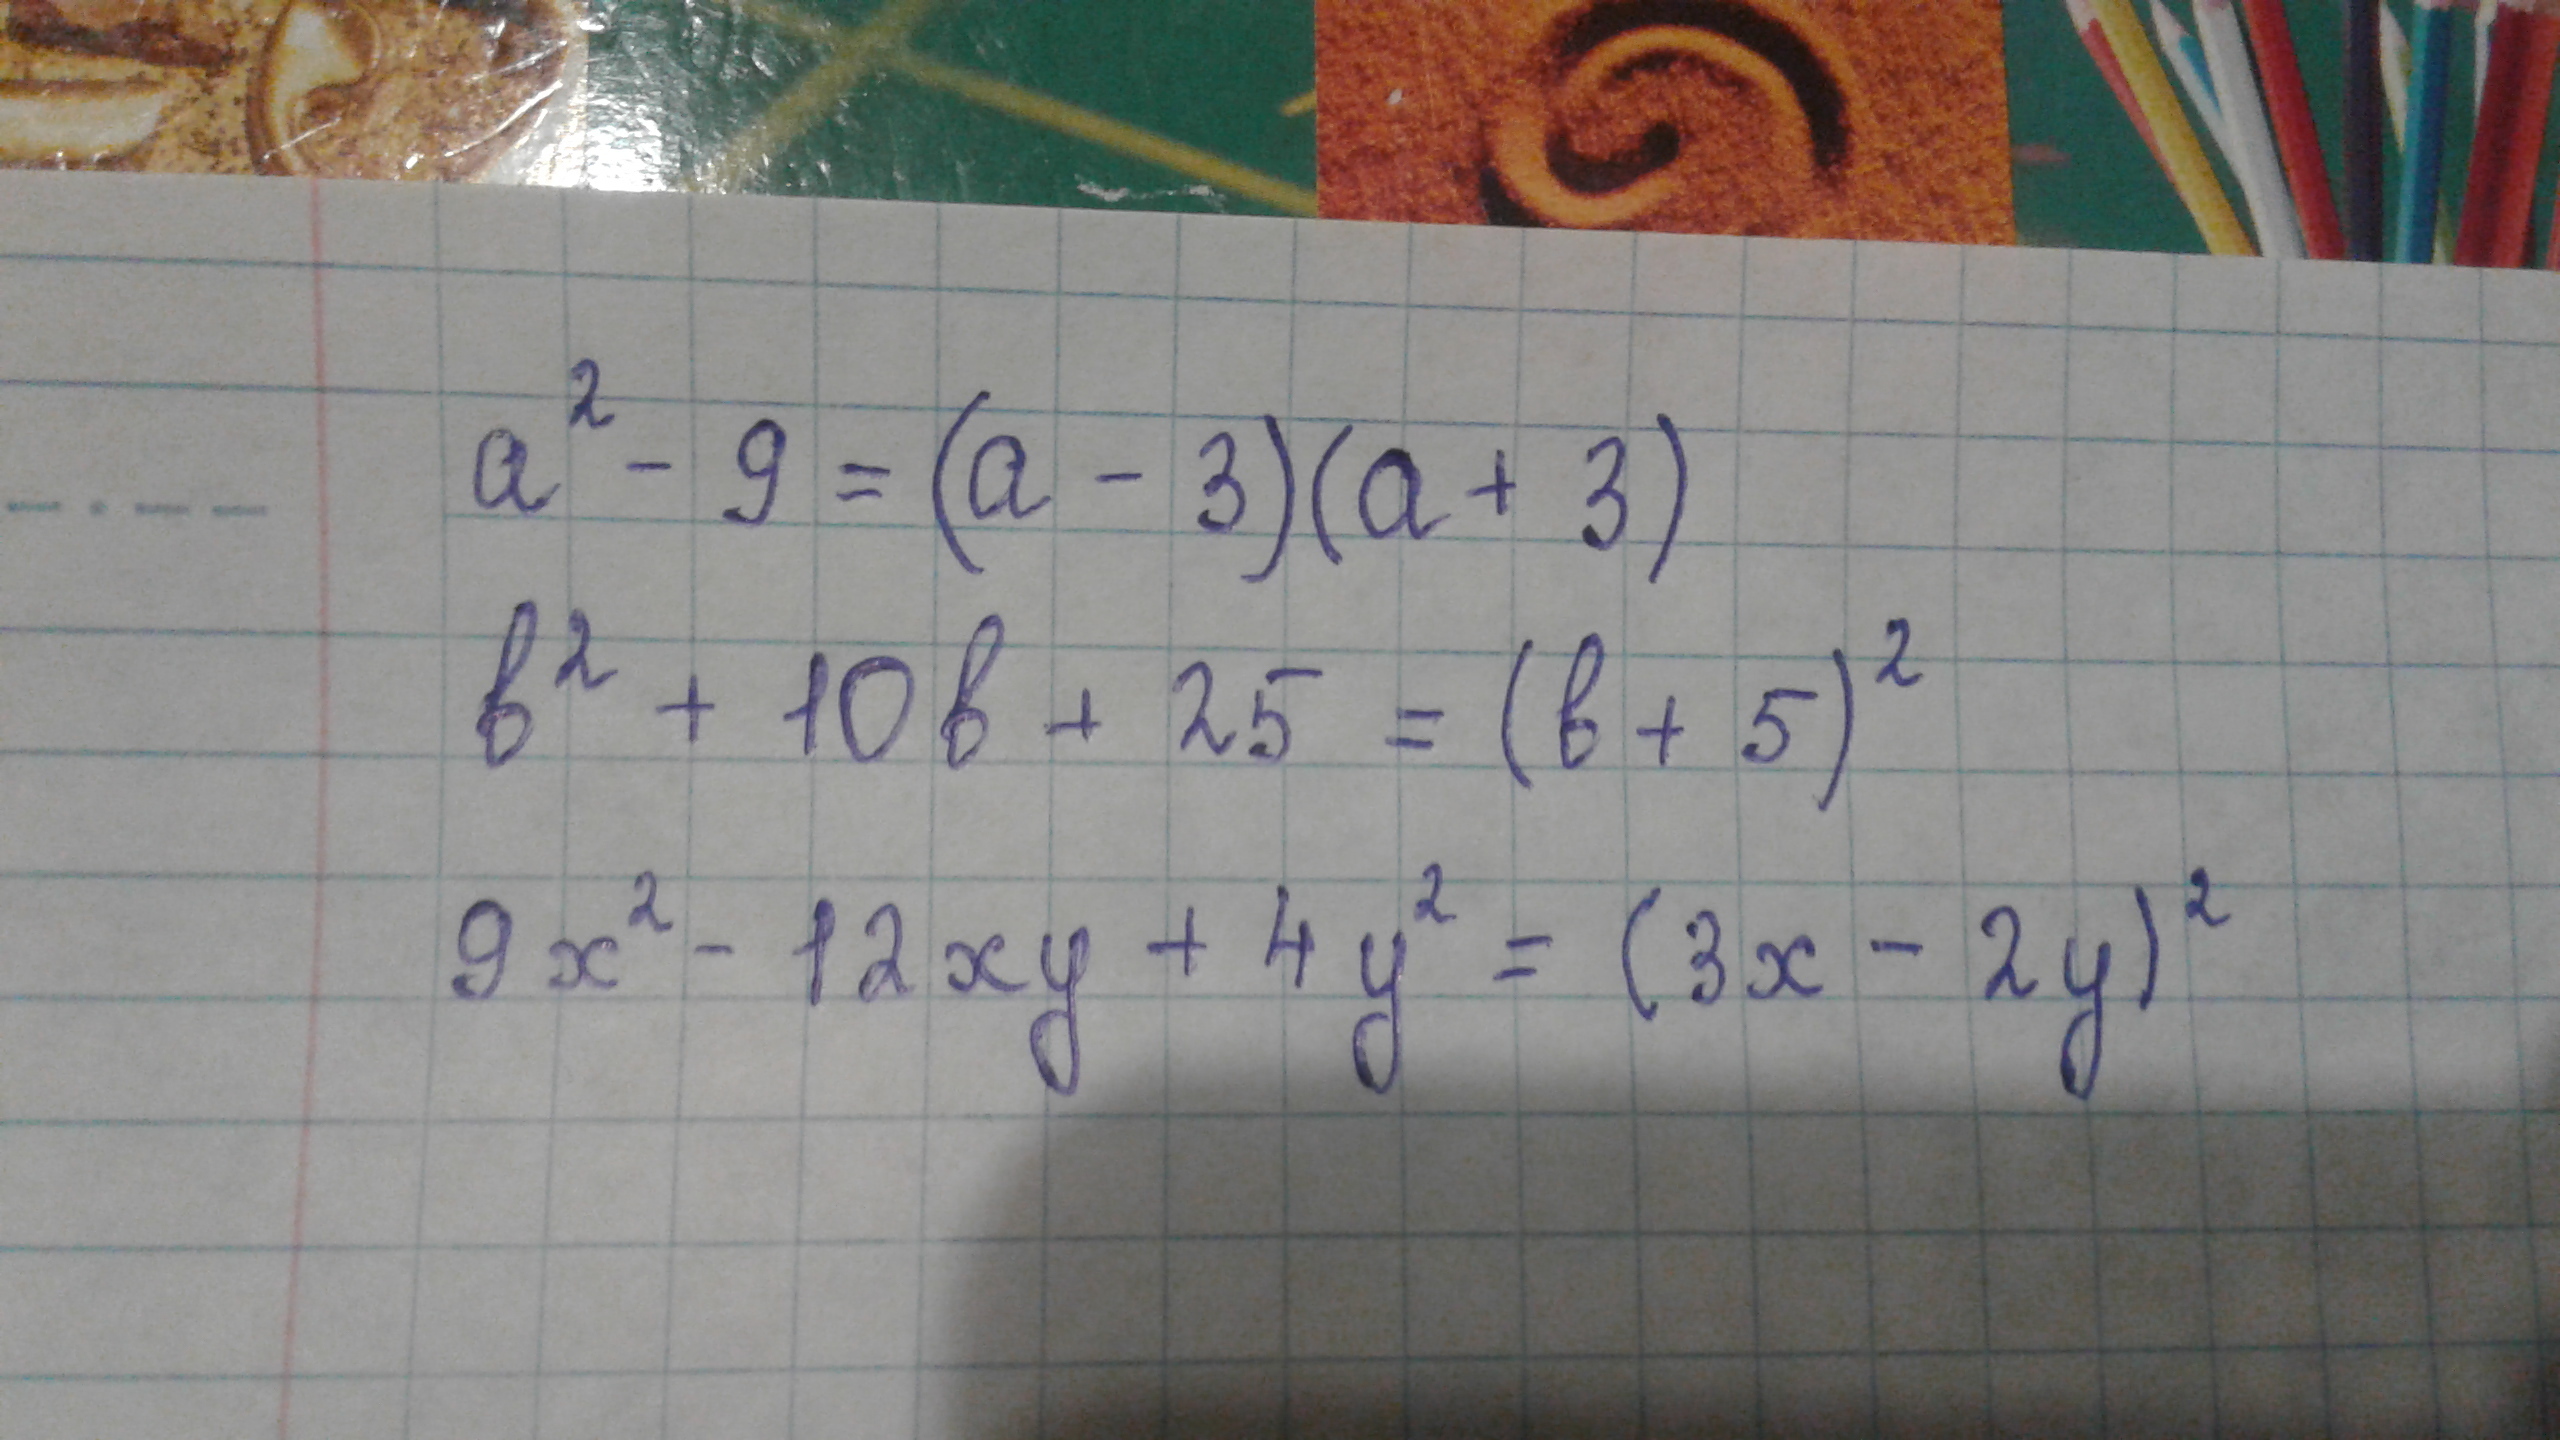 a² - 9 = (a - 3)(a + 3)
b² + 10b + 25 = (b + 5)²
9x² - 12xy + 4y² = (3x - 2y)²